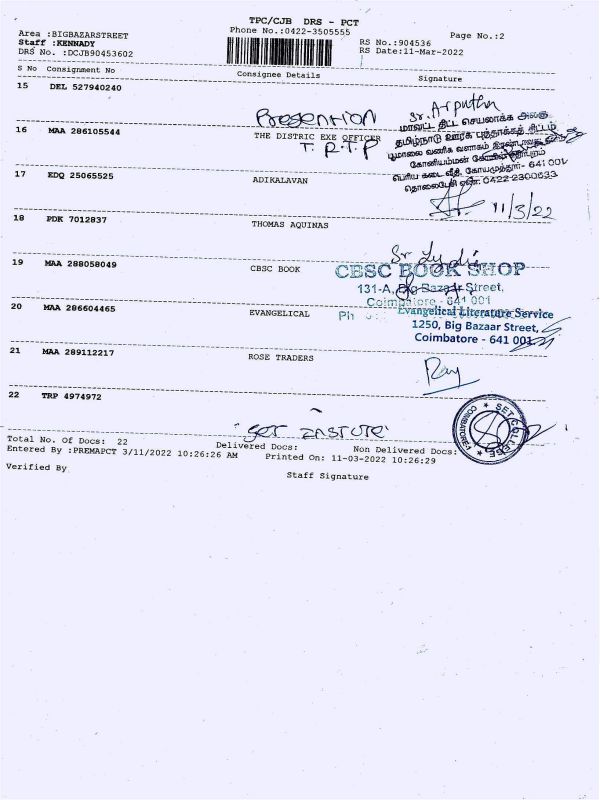 TPC/CJB DRS - PCT
Area :BIGBAZARSTREET
Phone No.:0422-3505555
Page No.:2
Staff :KENNADY
RS No.:904536
DRS No. :DCJB90453602
RS Date:11-Mar-2022
S No Consignment No Consignee Details Signature
15 DEL 527940240
Presention
Sr. Arputha
மாவட்ட திட்ட செயலாக்க அலகு
தமிழ்நாடு ஊரக புத்தாக்கத் திட்டம்
16 MAA 286105544 THE DISTRIC EXE OFFICER
T. R. T. P
பூமாலை வணிக வளாகம்
பெரிய கடை வீதி, கோயமுத்தூர்- 641 001
தொலைபேசி எண்: 0422-2300633
17 EDQ 25065525 ADIKALAVAN
11/3/22
18 PDK 7012837 THOMAS AQUINAS
Sr Lydia
19 MAA 288058049 CBSC BOOK
CBSC BOOK SHOP
131-A, Big Bazaar Street,
Coimbatore - 641 001
Ph
20 MAA 286604465 EVANGELICAL
Evangelical Literature Service
1250, Big Bazaar Street,
Coimbatore - 641 001.
21 MAA 289112217 ROSE TRADERS
Ray
22 TRP 4974972
SET COLLEGE
COIMBATORE-1
Total No. Of Docs: 22 Delivered Docs: Non Delivered Docs:
Entered By :PREMAPCT 3/11/2022 10:26:26 AM Printed On: 11-03-2022 10:26:29
Verified By Staff Signature